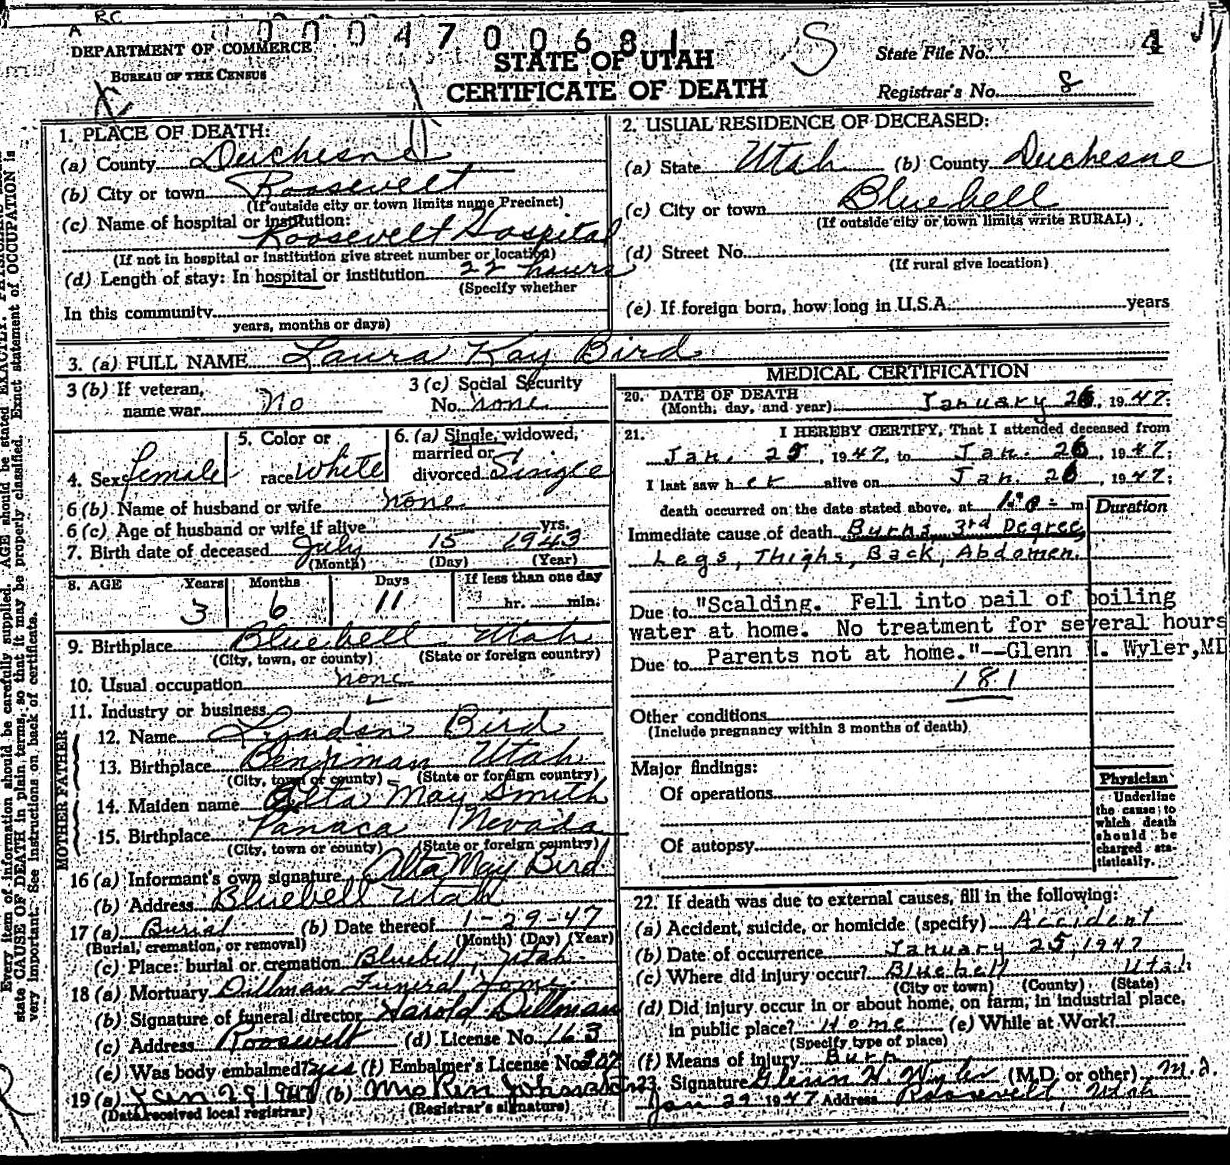 A RC
000470068 1
DEPARTMENT OF COMMERCE
BUREAU OF THE CENSUS
STATE OF UTAH
CERTIFICATE OF DEATH
S
State File No. 4
Registrar's No. 8
1. PLACE OF DEATH:
(a) County Duchesne
(b) City or town Roosevelt
(If outside city or town limits name Precinct)
(c) Name of hospital or institution:
Roosevelt Hospital
(If not in hospital or institution give street number or location)
(d) Length of stay: In hospital or institution 22 hours
(Specify whether
In this community
years, months or days)
2. USUAL RESIDENCE OF DECEASED:
(a) State Utah (b) County Duchesne
(c) City or town Bluebell
(If outside city or town limits write RURAL)
(d) Street No.
(If rural give location)
(e) If foreign born, how long in U.S.A. years
3. (a) FULL NAME Laura Kay Bird
3 (b) If veteran, name war No
3 (c) Social Security No. none
4. Sex female
5. Color or race White
6. (a) Single, widowed, married or divorced Single
6 (b) Name of husband or wife none
6 (c) Age of husband or wife if alive yrs.
7. Birth date of deceased July 15 1943
(Month) (Day) (Year)
8. AGE Years 3 Months 6 Days 11 If less than one day hr. min.
9. Birthplace Bluebell Utah
(City, town, or county) (State or foreign country)
10. Usual occupation none
11. Industry or business
FATHER
12. Name Lyndon Bird
13. Birthplace Benjiman Utah
(City, town or county) (State or foreign country)
MOTHER
14. Maiden name Alta May Smith
15. Birthplace Panaca Nevada
(City, town or county) (State or foreign country)
16 (a) Informant's own signature Alta May Bird
(b) Address Bluebell Utah
17 (a) Burial (b) Date thereof 1-29-47
(Burial, cremation, or removal) (Month) (Day) (Year)
(c) Place: burial or cremation Bluebell, Utah
18 (a) Mortuary Dillman Funeral Home
(b) Signature of funeral director Harold Dillman
(c) Address Roosevelt (d) License No. 163
(e) Was body embalmed? yes (f) Embalmer's License No.
19 (a) Jan 29 1947 (b) Mrs Ren Johnston
(Date received local registrar) (Registrar's signature)
MEDICAL CERTIFICATION
20. DATE OF DEATH
(Month, day, and year) January 26, 1947.
21. I HEREBY CERTIFY, That I attended deceased from
Jan. 25, 1947, to Jan. 26, 1947;
I last saw her alive on Jan. 26, 1947;
death occurred on the date stated above, at m
Duration
Immediate cause of death Burns, 3rd Degree,
Legs, Thighs, Back, Abdomen.
Due to "Scalding. Fell into pail of boiling
water at home. No treatment for several hours
Due to Parents not at home."--Glenn H. Wyler, MD
181
Other conditions
(Include pregnancy within 3 months of death)
Major findings:
Of operations
Of autopsy
Physician
Underline the cause to which death should be charged statistically.
22. If death was due to external causes, fill in the following:
(a) Accident, suicide, or homicide (specify) Accident
(b) Date of occurrence January 25, 1947
(c) Where did injury occur? Bluebell Utah
(City or town) (County) (State)
(d) Did injury occur in or about home, on farm, in industrial place,
in public place? Home (e) While at Work?
(Specify type of place)
(f) Means of injury Burn
23. Signature Glenn H. Wyler (M.D. or other) M.D.
Jan 29 1947 Address Roosevelt, Utah
Every item of information should be carefully supplied. AGE should be stated EXACTLY.
state CAUSE OF DEATH in plain terms, so that it may be properly classified. Exact statement of OCCUPATION is
very important. See instructions on back of certificate.